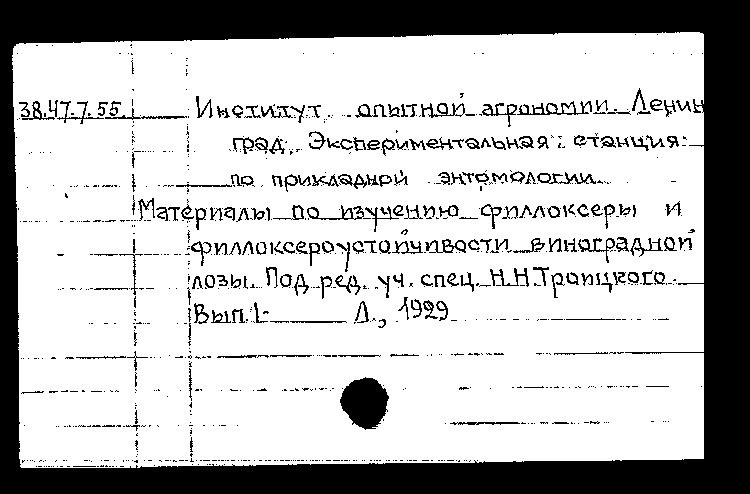 38.47.7.55. Институт опытной агрономии. Ленин
град. Экспериментальная станция
по прикладной энтомологии.
Материалы по изучению филлоксеры и
филлоксероустойчивости виноградной
лозы. Под ред. уч. спец. Н.Н.Троицкого.
Вып.1- Л., 1929